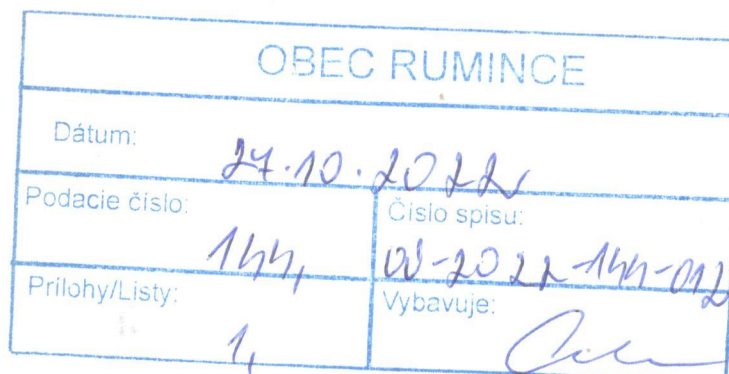 OBEC RUMINCE
Dátum: 27.10.2022
Podacie číslo: 144,
Číslo spisu: OÚ-2022-144-012
Prílohy/Listy: 1,
Vybavuje: